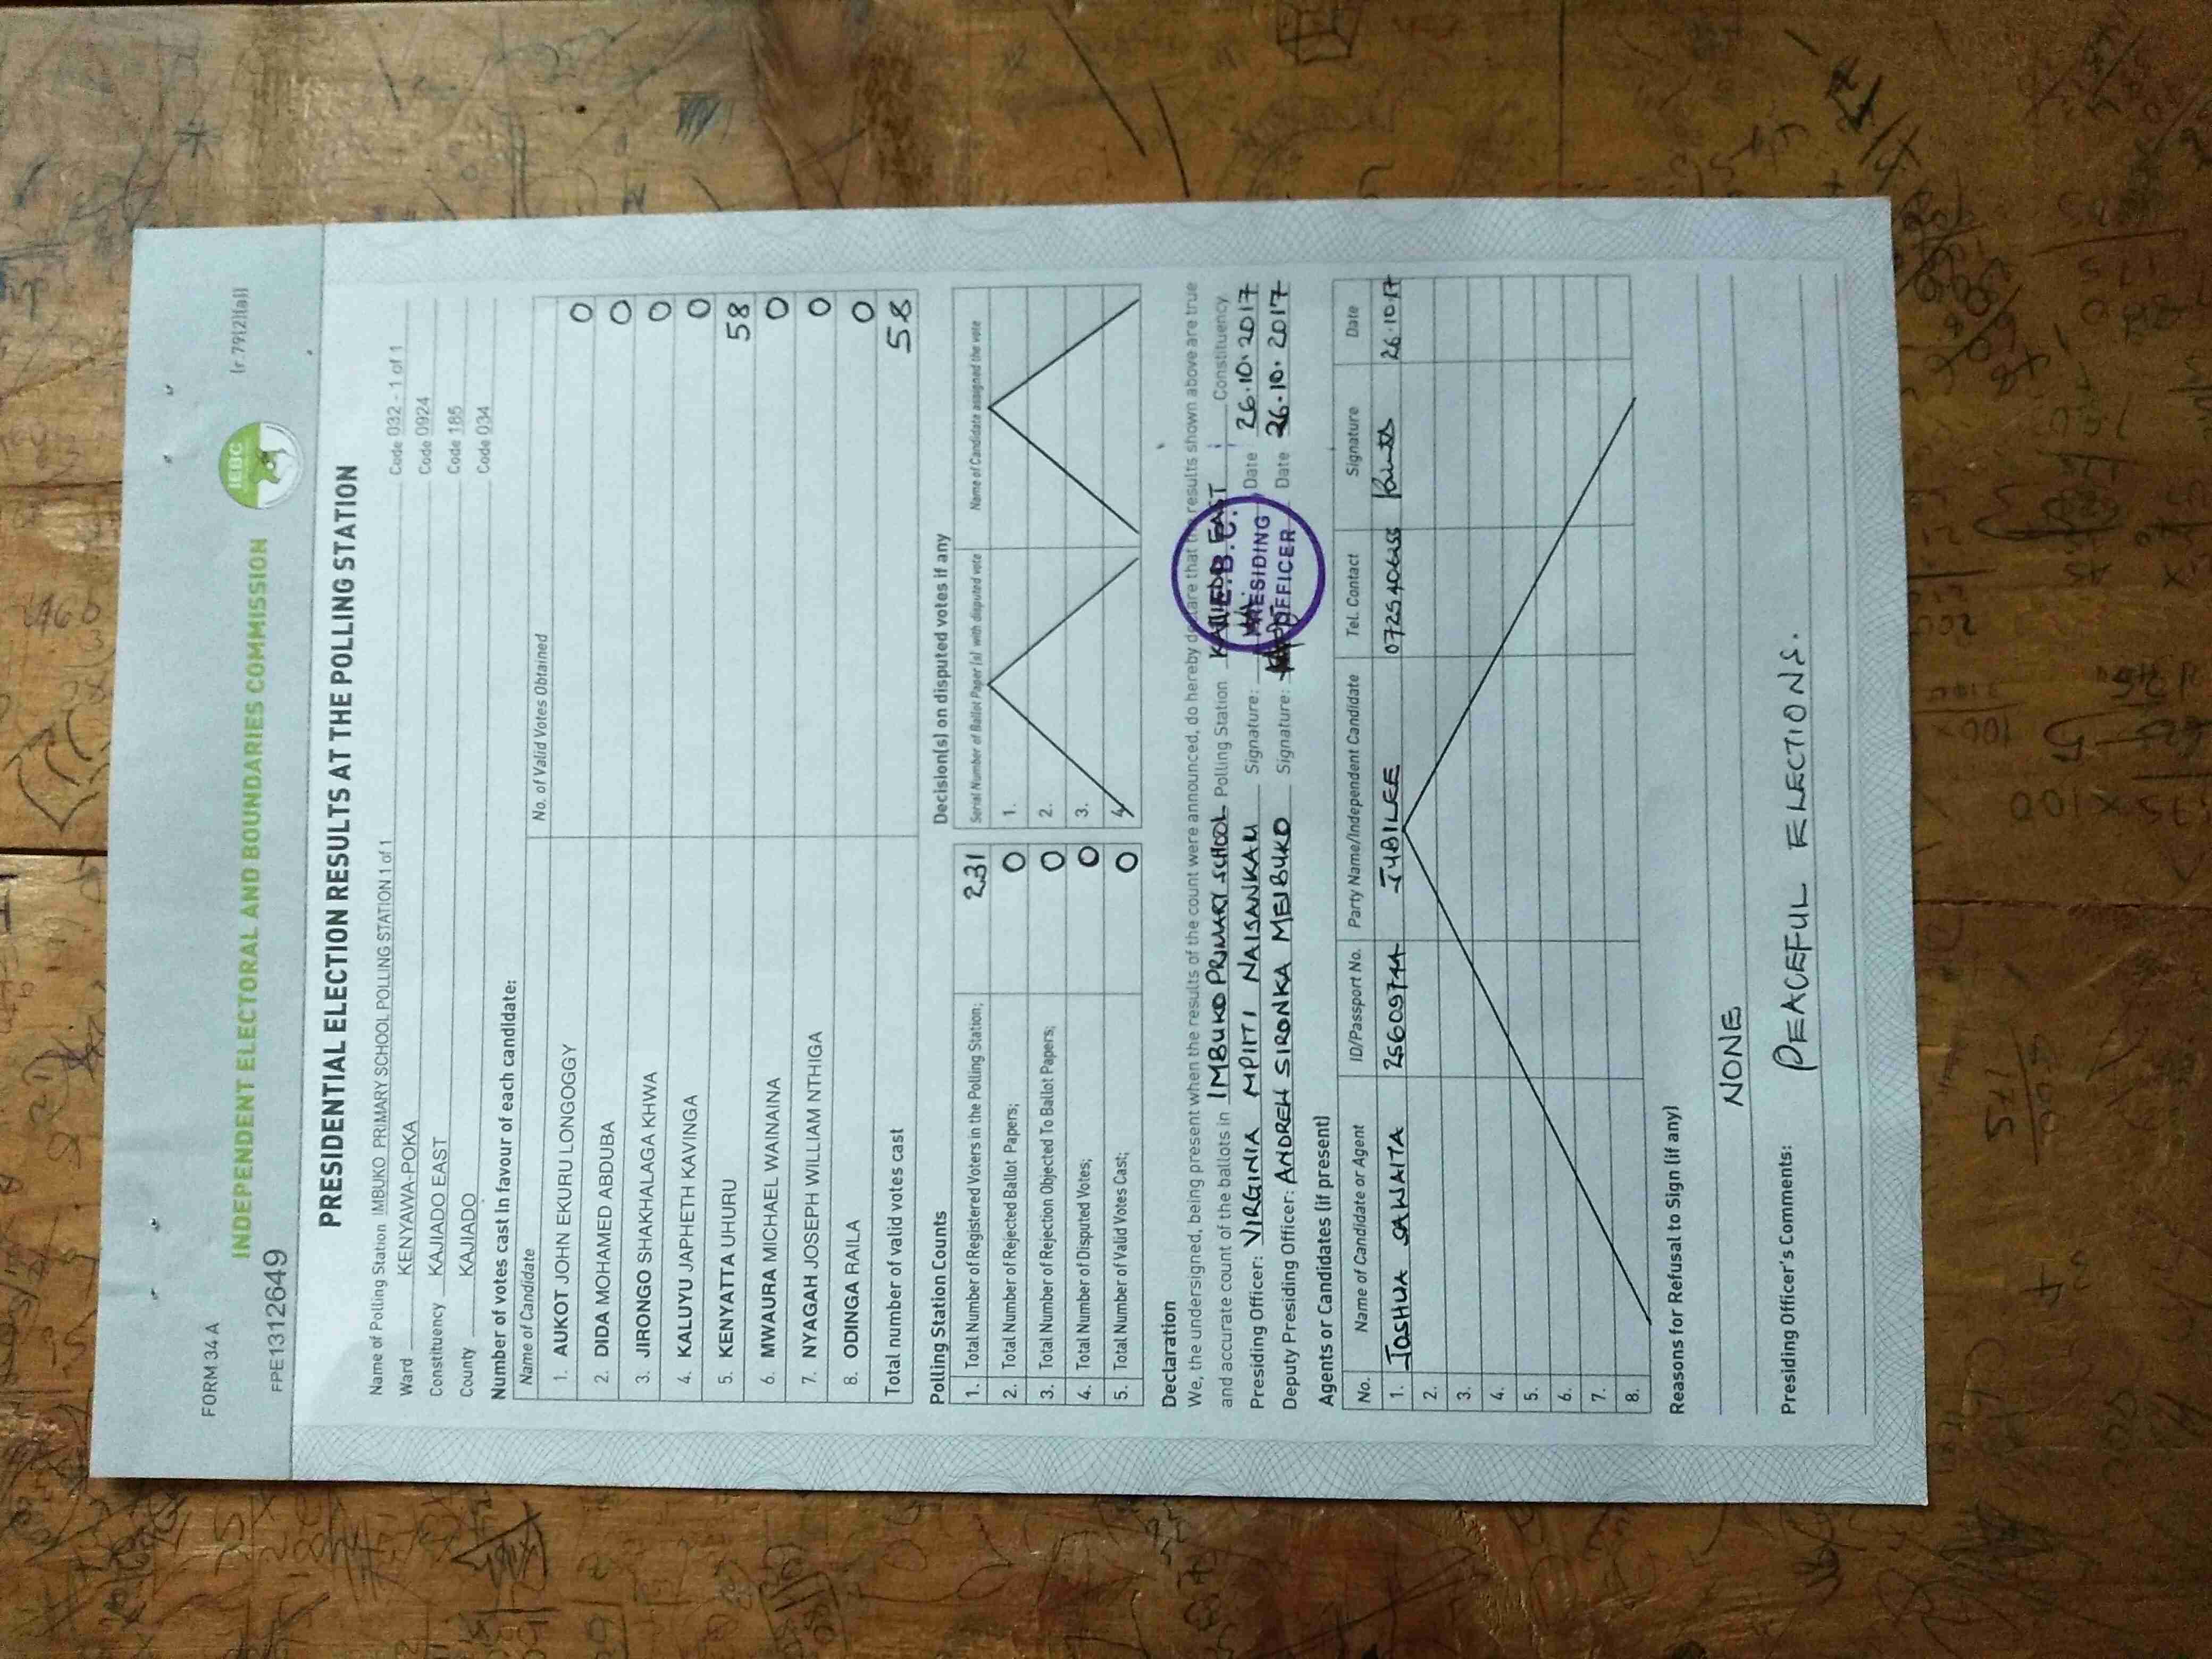 FORM 34 A
(r.79(2)(a))
INDEPENDENT ELECTORAL AND BOUNDARIES COMMISSION
IEBC
FPE1312649
PRESIDENTIAL ELECTION RESULTS AT THE POLLING STATION
Name of Polling Station IMBUKO PRIMARY SCHOOL POLLING STATION 1 of 1 Code 032 - 1 of 1
Ward KENYAWA-POKA Code 0924
Constituency KAJIADO EAST Code 185
County KAJIADO Code 034
Number of votes cast in favour of each candidate:
Name of Candidate No. of Valid Votes Obtained
1. AUKOT JOHN EKURU LONGOGGY 0
2. DIDA MOHAMED ABDUBA 0
3. JIRONGO SHAKHALAGA KHWA 0
4. KALUYU JAPHETH KAVINGA 0
5. KENYATTA UHURU 58
6. MWAURA MICHAEL WAINAINA 0
7. NYAGAH JOSEPH WILLIAM NTHIGA 0
8. ODINGA RAILA 0
Total number of valid votes cast 58
Polling Station Counts Decision(s) on disputed votes if any
Serial Number of Ballot Paper (s) with disputed vote Name of Candidate assigned the vote
1. Total Number of Registered Voters in the Polling Station; 231 1.
2. Total Number of Rejected Ballot Papers; 0 2.
3. Total Number of Rejection Objected To Ballot Papers; 0 3.
4. Total Number of Disputed Votes; 0
5. Total Number of Valid Votes Cast; 0
Declaration
We, the undersigned, being present when the results of the count were announced, do hereby declare that the results shown above are true
and accurate count of the ballots in IMBUKO PRIMARY SCHOOL Polling Station KAJIADO EAST Constituency.
Presiding Officer: VIRGINIA MPIITI NAISANKAU Signature: Date 26.10.2017
Deputy Presiding Officer: ANDREW SIRONKA MEIBUKO Signature: Date 26.10.2017
I.E.B.C.
PRESIDING
OFFICER
Agents or Candidates (if present)
No. Name of Candidate or Agent ID/Passport No. Party Name/Independent Candidate Tel. Contact Signature Date
1. JOSHUA SAWAITA 25609744 JUBILEE 26.10.17
2.
3.
4.
5.
6.
7.
8.
Reasons for Refusal to Sign (if any)
NONE
Presiding Officer's Comments:
PEACEFUL ELECTIONS.